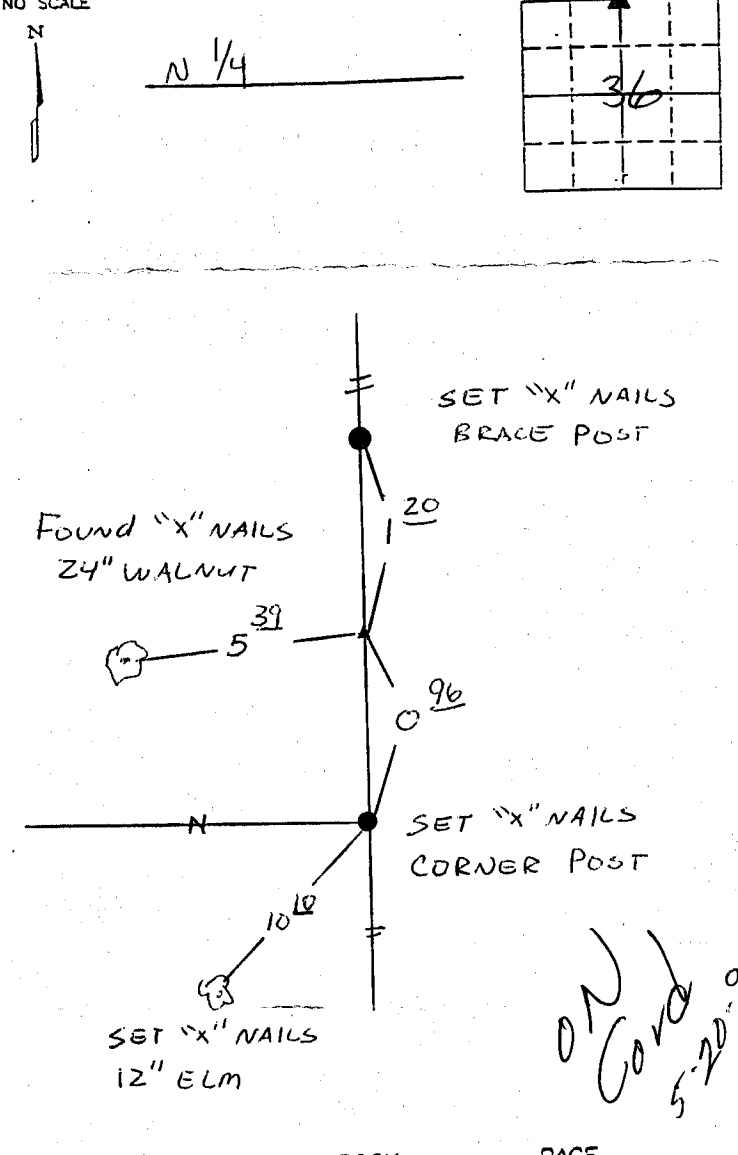 NO SCALE
N
N 1/4
36
SET "X" NAILS
BRACE POST
1 20
FOUND "X" NAILS
24" WALNUT
5 39
0 96
N
SET "X" NAILS
CORNER POST
10
SET "X" NAILS
12" ELM
ON
Card
PAGE